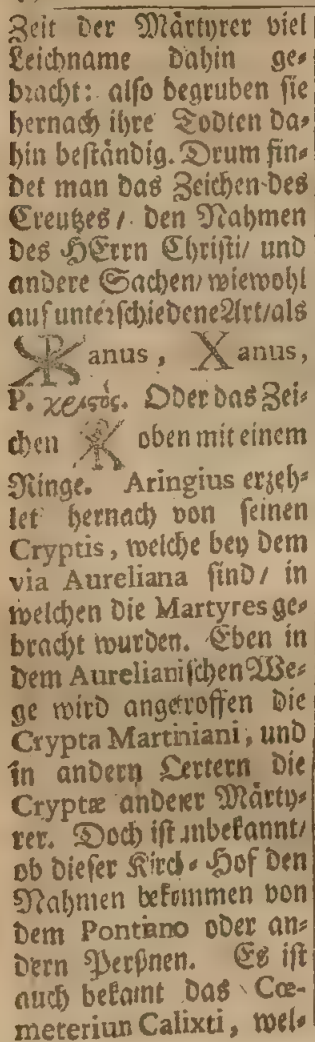 Zeit der Märtyrer viel
Leichname dahin ge-
bracht: also begruben sie
hernach ihre Todten da-
hin beständig. Drum fin-
det man das Zeichen des
Creutzes / den Nahmen
des HErrn Christi / und
andere Sachen / wiewohl
auf unterschiedene Art / als
☧anus, Xanus,
P. χριστός. Oder das Zei-
chen ☧ oben mit einem
Ringe. Aringius erzeh-
let hernach von seinen
Cryptis, welche bey dem
via Aureliana sind / in
welchen die Martyres ge-
bracht wurden. Eben in
dem Aurelianischen We-
ge wird angetroffen die
Crypta Martiniani, und
in andern Oertern die
Cryptæ anderer Märty-
rer. Doch ist unbekannt /
ob dieser Kirch-Hof den
Nahmen bekommen von
dem Pontiano oder an-
dern Persnen. Es ist
auch bekamt das Cœ-
meteriun Calixti, wel-